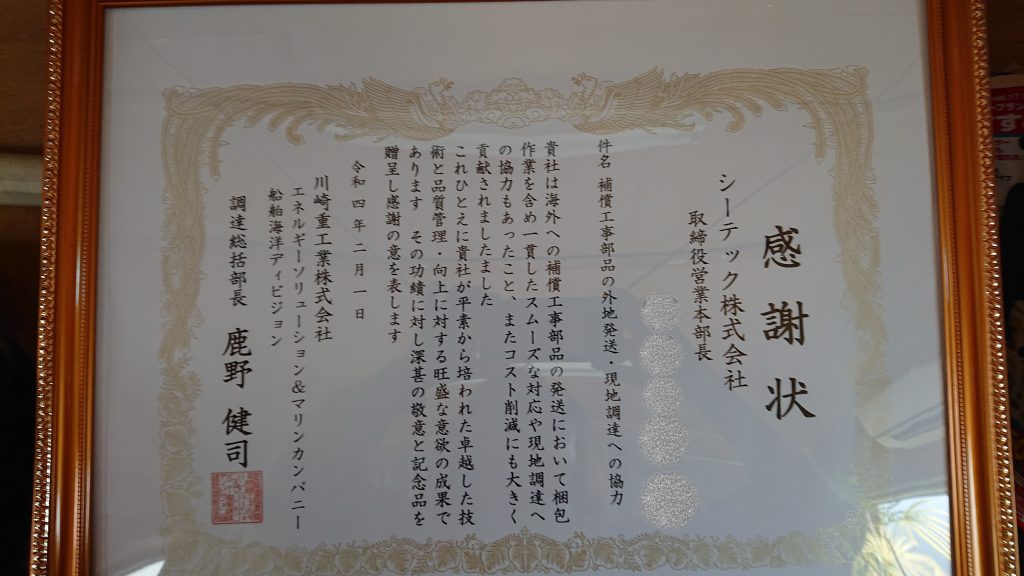 感謝状
シーテック株式会社
取締役営業本部長
件名 補償工事部品の外地発送・現地調達への協力
貴社は海外への補償工事部品の発送において梱包
作業を含め一貫したスムーズな対応や現地調達へ
の協力もあったこと、またコスト削減にも大きく
貢献されましたました
これひとえに貴社が平素から培われた卓越した技
術と品質管理・向上に対する旺盛な意欲の成果で
あります その功績に対し深甚の敬意と記念品を
贈呈し感謝の意を表します
令和四年二月一日
川崎重工業株式会社
エネルギーソリューション&マリンカンパニー
船舶海洋ディビジョン
調達総括部長 鹿野健司